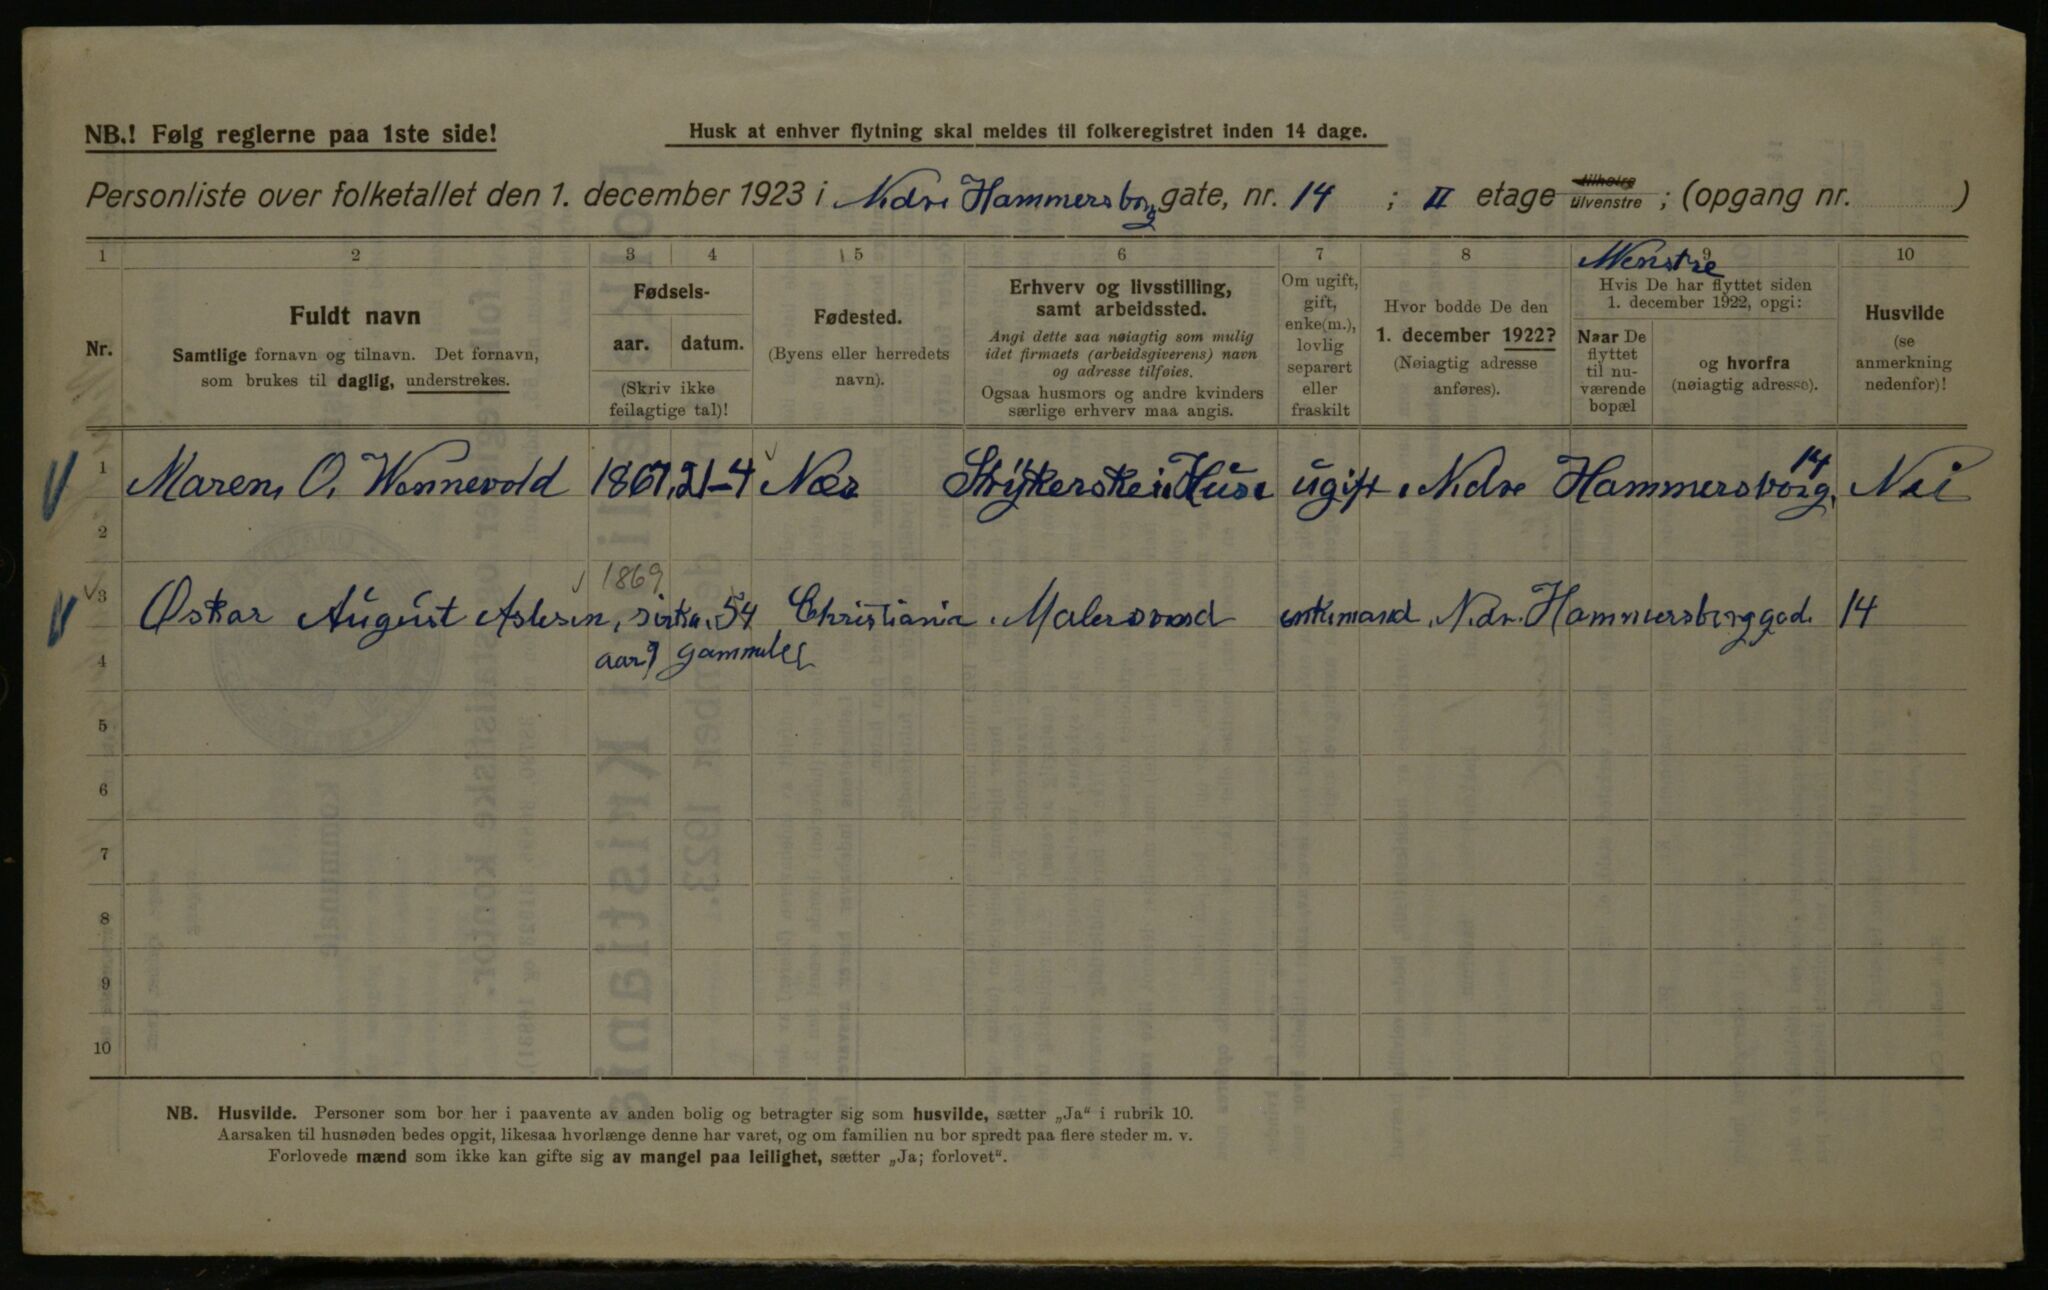 NB.! Følg reglerne paa 1ste side!
Husk at enhver flytning skal meldes til folkeregistret inden 14 dage.
Personliste over folketallet den 1. december 1923 i Nedre Hammersborg gate, nr. 14 ; II etage tilhøire tilvenstre ; (opgang nr. )
1 2 3 4 5 6 7 8 9 10
Venstre
Nr.
Fuldt navn
Samtlige fornavn og tilnavn. Det fornavn,
som brukes til daglig, understrekes.
Fødsels-
aar. datum.
(Skriv ikke
feilagtige tal)!
Fødested.
(Byens eller herredets
navn).
Erhverv og livsstilling,
samt arbeidssted.
Angi dette saa nøiagtig som mulig
idet firmaets (arbeidsgiverens) navn
og adresse tilføies.
Ogsaa husmors og andre kvinders
særlige erhverv maa angis.
Om ugift,
gift,
enke(m.),
lovlig
separert
eller
fraskilt
Hvor bodde De den
1. december 1922?
(Nøiagtig adresse
anføres).
Hvis De har flyttet siden
1. december 1922, opgi:
Naar De
flyttet
til nu-
værende
bopæl
og hvorfra
(nøiagtig adresse).
Husvilde
(se
anmerkning
nedenfor)!
1 Maren O. Wennevold 1867, 21-4 Næs Strykerske i Huse ugift Nedre Hammersborg 14 Nei
2
1869
3 Oskar August Aslesen, sirka 54 Christiania Malersvend enkemand Nedr. Hammersborggad. 14
4 aar gammel
5
6
7
8
9
10
NB. Husvilde. Personer som bor her i paavente av anden bolig og betragter sig som husvilde, sætter „Ja“ i rubrik 10.
Aarsaken til husnøden bedes opgit, likesaa hvorlænge denne har varet, og om familien nu bor spredt paa flere steder m. v.
Forlovede mænd som ikke kan gifte sig av mangel paa leilighet, sætter „Ja; forlovet“.